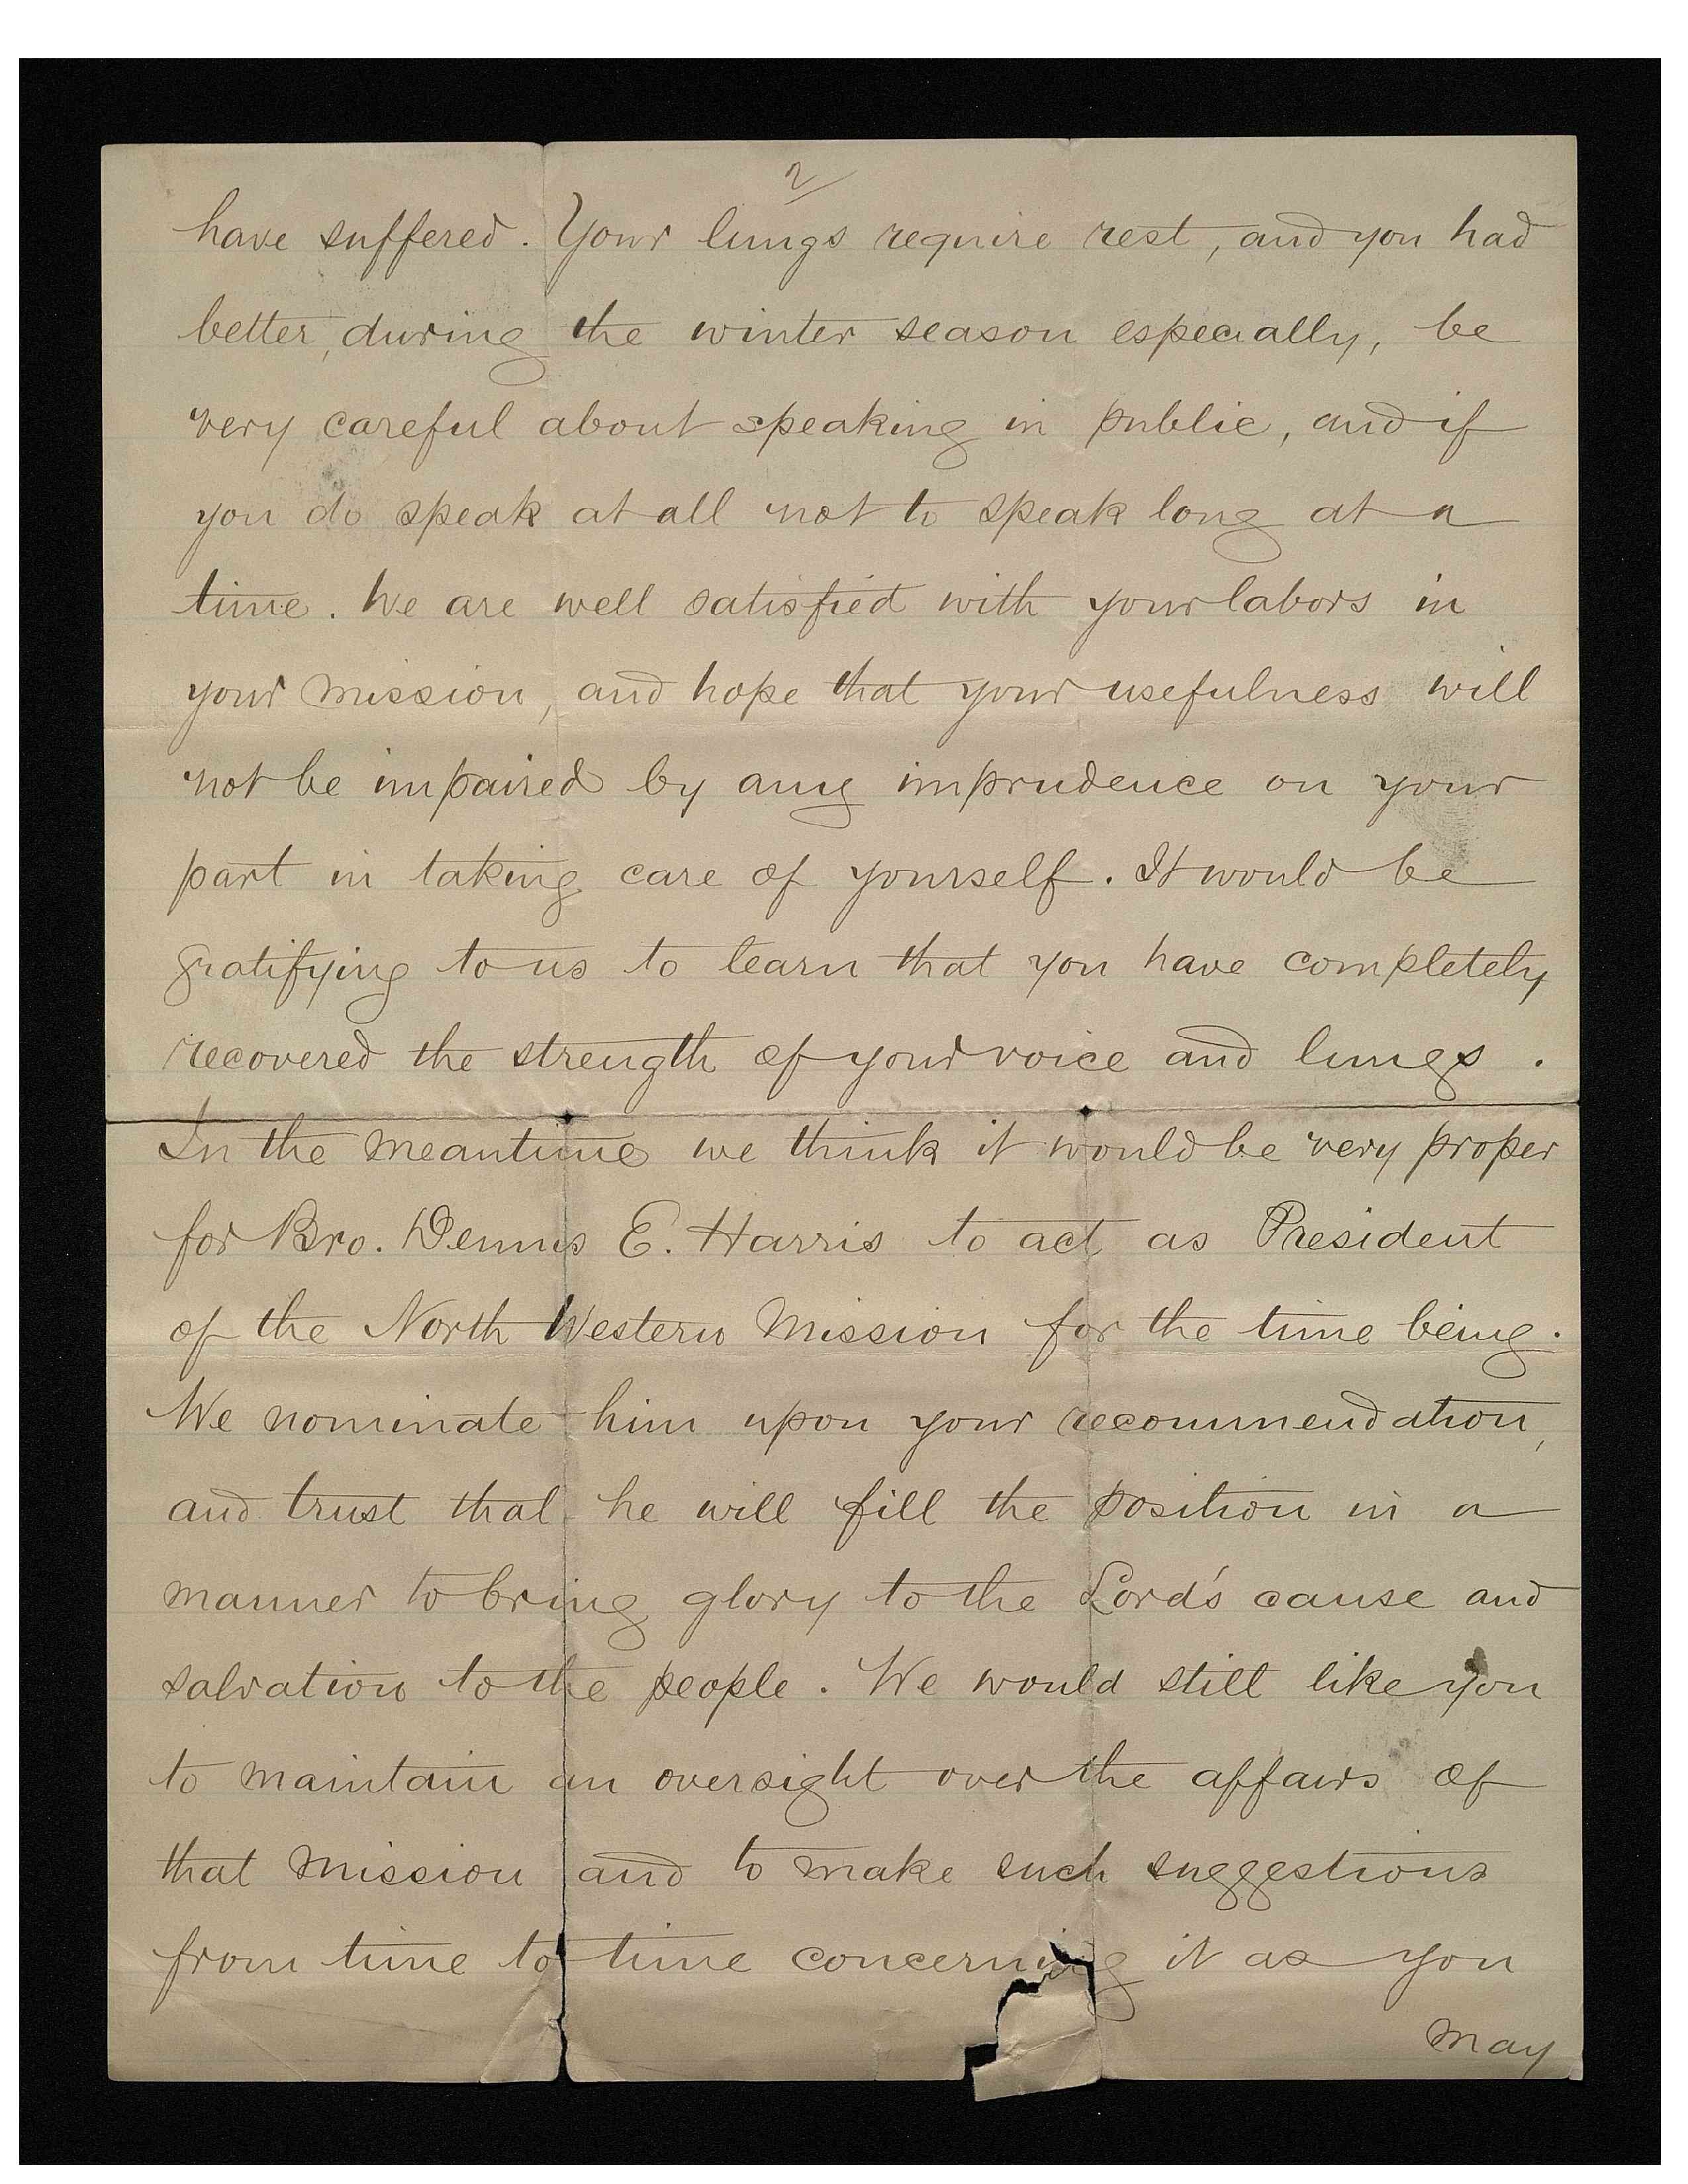 2
have suffered. Your lungs require rest, and you had
better, during the winter season especially, be
very careful about speaking in public, and if
you do speak at all not to speak long at a
time. We are well satisfied with your labors in
your mission, and hope that your usefulness will
not be impaired by any imprudence on your
part in taking care of yourself. It would be
gratifying to us to learn that you have completely
recovered the strength of your voice and lungs.
In the meantime we think it would be very proper
for Bro. Dennis E. Harris to act as President
of the North Western Mission for the time being.
We nominate him upon your recommendation,
and trust that he will fill the position in a
manner to bring glory to the Lord's cause and
salvation to the people. We would still like you
to maintain an oversight over the affairs of
that mission and to make such suggestions
from time to time concerning it as you
may